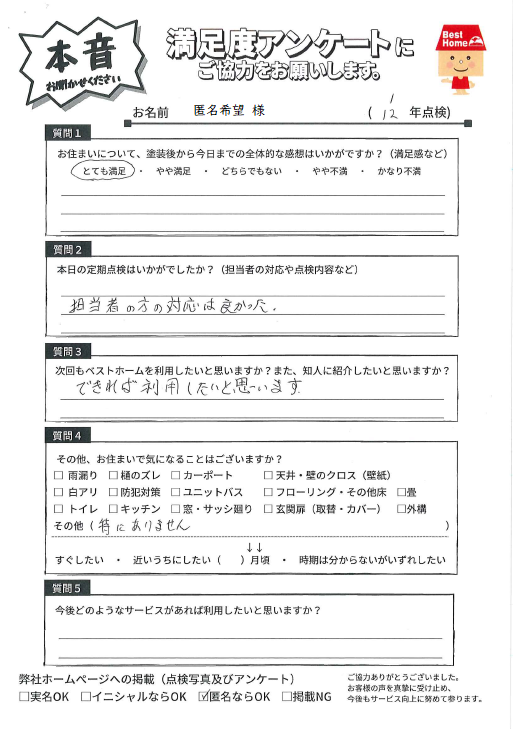 本音
お聞かせください
満足度アンケートに
ご協力をお願いします。
Best
Home
お名前 匿名希望 様 ( 12 年点検)
質問1
お住まいについて、塗装後から今日までの全体的な感想はいかがですか？（満足感など）
とても満足 ・ やや満足 ・ どちらでもない ・ やや不満 ・ かなり不満
質問2
本日の定期点検はいかがでしたか？（担当者の対応や点検内容など）
担当者の方の対応は良かった.
質問3
次回もベストホームを利用したいと思いますか？また、知人に紹介したいと思いますか？
できれば利用したいと思います
質問4
その他、お住まいで気になることはございますか？
□ 雨漏り □ 樋のズレ □ カーポート □ 天井・壁のクロス（壁紙）
□ 白アリ □ 防犯対策 □ ユニットバス □ フローリング・その他床 □畳
□ トイレ □ キッチン □ 窓・サッシ廻り □ 玄関扉（取替・カバー） □外構
その他（ 特にありません ）
↓↓
すぐしたい ・ 近いうちにしたい（ ）月頃 ・ 時期は分からないがいずれしたい
質問5
今後どのようなサービスがあれば利用したいと思いますか？
弊社ホームページへの掲載（点検写真及びアンケート）
□実名OK □イニシャルならOK ☑匿名ならOK □掲載NG
ご協力ありがとうございました。
お客様の声を真摯に受け止め、
今後もサービス向上に努めて参ります。